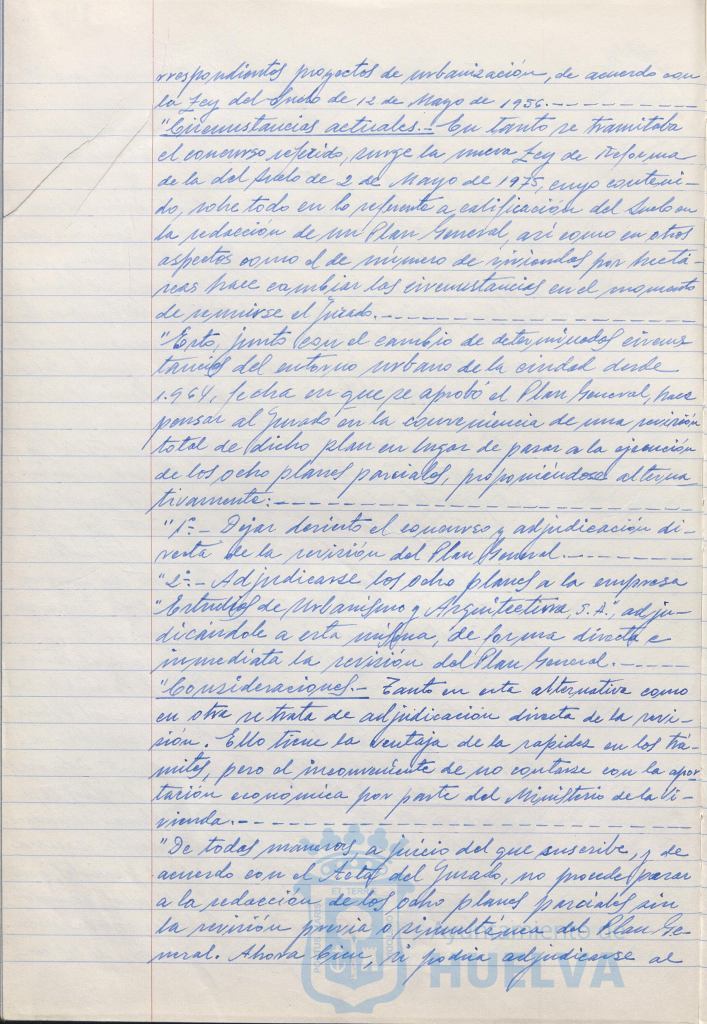 rrespondientes proyectos de urbanización, de acuerdo con
la Ley del Suelo de 12 de Mayo de 1956.--------
"Circunstancias actuales.- En tanto se tramitaba
el concurso referido, surge la nueva Ley de Reforma
de la del Suelo de 2 de Mayo de 1975, cuyo conteni-
do, sobre todo en lo referente a calificación del Suelo en
la redacción de un Plan General, así como en otros
aspectos como el de número de viviendas por hectá-
reas hace cambiar las circunstancias en el momento
de reunirse el Jurado.---------------
"Esto, junto con el cambio de determinadas circuns
tancias del entorno urbano de la ciudad desde
1.964, fecha en que se aprobó el Plan General, hace
pensar al Jurado en la conveniencia de una revisión
total de dicho plan en lugar de pasar a la ejecución
de los ocho planes parciales, proponiéndose alterna
tivamente:------------------
"1º.- Dejar desierto el concurso y adjudicación di-
recta de la revisión del Plan General.------
"2º.- Adjudicarse los ocho planes a la empresa
"Estudios de Urbanismo y Arquitectura, S.A.", adju-
dicándole a esta misma, de forma directa e
inmediata la revisión del Plan General.-----
"Consideraciones.- Tanto en esta alternativa como
en otra se trata de adjudicación directa de la revi-
sión. Ello tiene la ventaja de la rapidez en los trá-
mites, pero el inconveniente de no contarse con la apor
tación económica por parte del Ministerio de la Vi-
vienda.--------------------
"De todas maneras, a juicio del que suscribe, y de
acuerdo con el Acta del Jurado, no procede pasar
a la redacción de los ocho planes parciales sin
la revisión previa o simultánea del Plan Ge-
neral. Ahora bien, si podría adjudicarse al
Ayuntamiento de
HUELVA